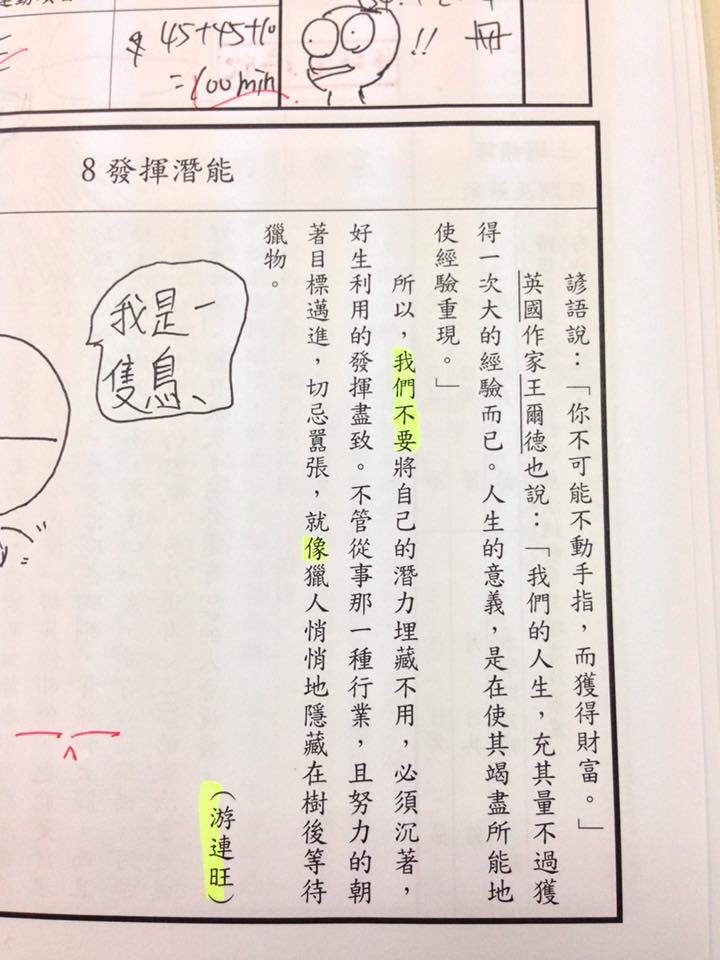 & 45+45+10
=100min
!!
冊
8 發揮潛能
諺語說：「你不可能不動手指，而獲得財富。」
英國作家王爾德也說：「我們的人生，充其量不過獲
得一次大的經驗而已。人生的意義，是在使其竭盡所能地
使經驗重現。」
所以，我們不要將自己的潛力埋藏不用，必須沉著，
好生利用的發揮盡致。不管從事那一種行業，且努力的朝
著目標邁進，切忌囂張，就像獵人悄悄地隱藏在樹後等待
獵物。
（游連旺）
我是一
隻鳥、